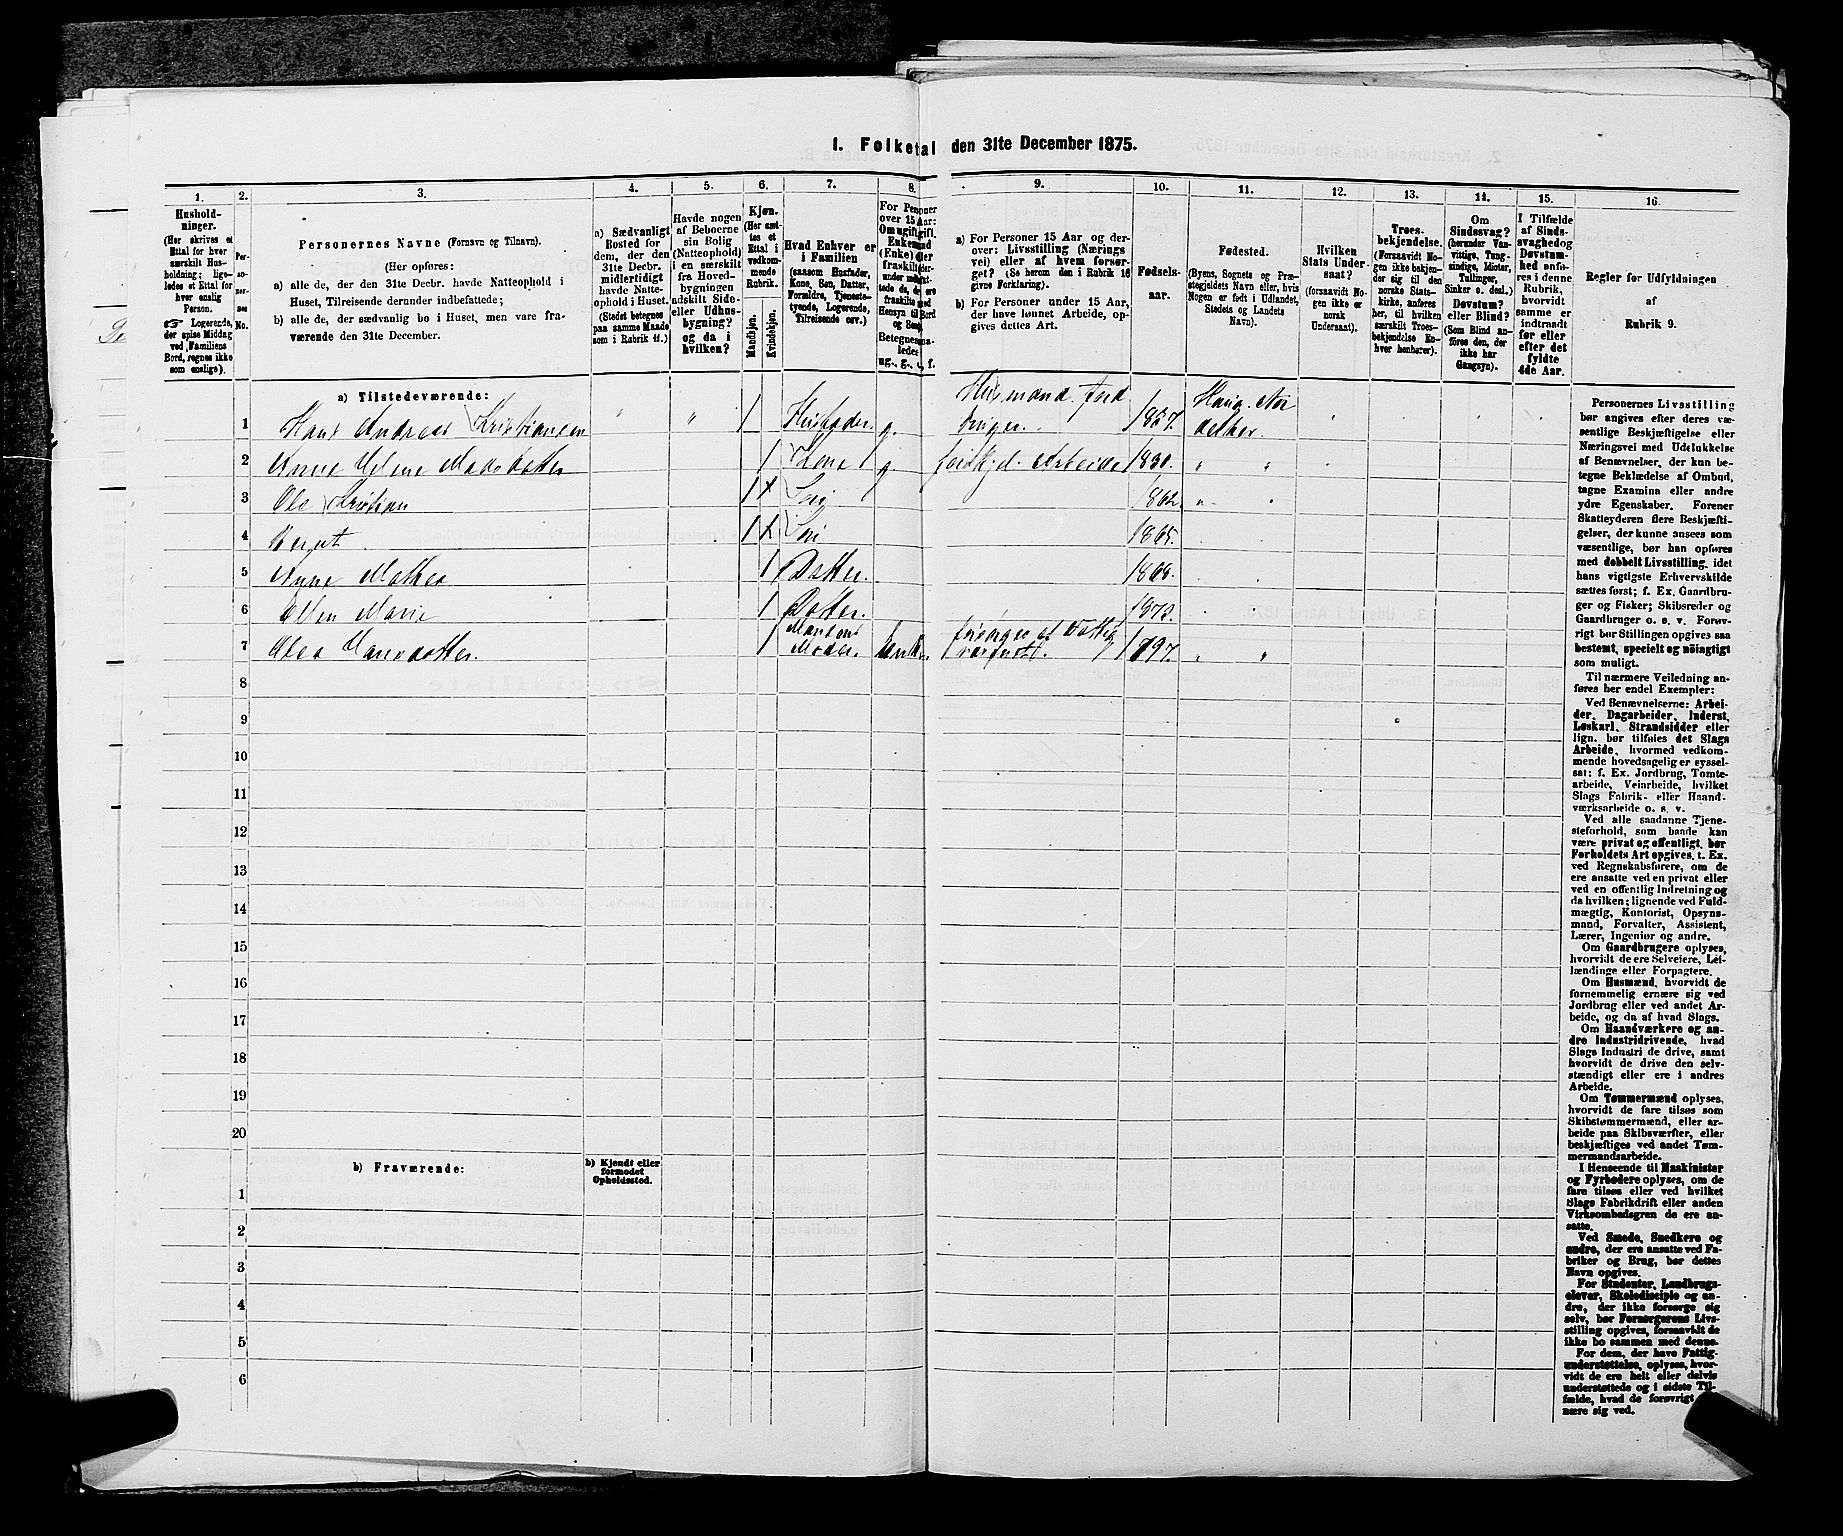 1. Folketal den 31te December 1875.
1. 2. 3. 4. 5. 6. 7. 8. 9. 10. 11. 12. 13. 14. 15. 16.
Hushold-
ninger.
(Her skrives et
Ettal for hver
særskilt Hus-
holdning; lige-
ledes et Ettal for
hver enslig
Person.
☞ Logerende,
der spise Middag
ved Familiens
Bord, regnes ikke
som enslige).
Per-
so-
ner-
nes
No.
Personernes Navne (Fornavn og Tilnavn).
(Her opføres:
a) alle de, der den 31te Decbr. havde Natteophold i
Huset, Tilreisende derunder indbefattede;
b) alle de, der sædvanlig bo i Huset, men vare fra-
værende den 31te December.
a) Sædvanligt
Bosted for
dem, der den
31te Decbr.
midlertidigt
havde Natte-
ophold i Huset.
(Stedet betegnes
paa samme Maade
som i Rubrik 11.)
Havde nogen
af Beboerne
sin Bolig
(Natteophold)
i en særskilt
fra Hoved-
bygningen
adskilt Side-
eller Udhus-
bygning?
og da i
hvilken?
Kjøn.
(Her sæt-
tes et
Ettal i
vedkom-
mende
Rubrik.
Mandkjøn.
Kvindekjøn.
Hvad Enhver er
i Familien
(saasom Husfader,
Kone, Søn, Datter,
Forældre, Tjeneste-
tyende, Logerende,
Tilreisende osv.)
For Personer
over 15 Aar:
a) For Personer 15 Aar og der-
over: Livsstilling (Nærings
vei) eller af hvem forsør-
get? (Se herom den i Rubrik 16
givne Forklaring).
b) For Personer under 15 Aar,
der have lønnet Arbeide, op-
gives dettes Art.
Fødsels-
aar.
Fødested.
(Byens, Sognets og Præ-
stegjeldets Navn eller, hvis
Nogen er født i Udlandet,
Stedets og Landets
Navn).
Hvilken
Stats Under-
saat?
(forsaavidt No-
gen ikke er
norsk
Undersaat).
Troes-
bekjendelse.
(Forsaavidt No-
gen ikke bekjen-
der sig til den
norske Stats-
kirke, anføres
her, til hvilken
særskilt Troes-
bekjendelse En-
hver henhører).
Om
Sindssvag?
(herunder Van-
vittige, Tung-
sindige, Idioter,
Tullinger,
Sinker o. desl.)
Døvstum?
eller Blind?
(Som Blind an-
føres den, der
ikke har
Gangsyn).
I Tilfælde
af Sinds-
svaghed og
Døvstum-
hed anfø-
res i denne
Rubrik,
hvorvidt
samme er
indtraadt
før eller
efter det
fyldte
4de Aar.
Regler for Udfyldningen
af
Rubrik 9.
a) Tilstedeværende:
1 Hans Andreas Kristiansen " " 1 Husfader. g. Husmand. Jord 1827. Haug. Ator
2 Anne Helene Madsdatter 1 Kone g 1830. " "
3 Ole Kristian 1 x Søn 1862. " "
4 1 x Søn 1865.
5 Anne Mathea 1 Datter. 1868.
6 Ellen Marie 1 Datter. 1872.
7 Olea Hansdatter. 1 Mandens Moder. Enke. forsørges af Fattig 1797. " "
8
9
10
11
12
13
14
15
16
17
18
19
20
b) Fraværende:
b) Kjendt eller
formodet
Opholdssted.
1
2
3
4
5
6
Personernes Livsstilling
bør angives efter deres væ-
sentlige Beskjæftigelse eller
Næringsvei med Udelukkelse
af Benævnelser, der kun be-
tegne Beklædelse af Ombud,
tagne Examina eller andre
ydre Egenskaber. Forener
Skatteyderen flere Beskjæfti-
gelser, der kunne ansees som
væsentlige, bør han opføres
med dobbelt Livsstilling, idet
hans vigtigste Erhvervskilde
sættes først; f. Ex. Gaardbru-
ger og Fisker; Skibsreder og
Gaardbruger o. s. v. Forøv-
rigt bør Stillingen opgives saa
bestemt, specielt og nøiagtigt
som muligt.
Til nærmere Veiledning an-
føres her endel Exempler:
Ved Benævnelserne: Arbei-
der, Dagarbeider, Inderst,
Løskarl, Strandsidder eller
lign. bør tilføies det Slags
Arbeide, hvormed vedkom-
mende hovedsagelig er syssel-
sat: f. Ex. Jordbrug, Tomte-
arbeide, Veiarbeide, hvilket
Slags Fabrik- eller Haand-
værksarbeide o. s. v.
Ved alle saadanne Tjene-
steforhold, som baade kan
være privat og offentligt, bør
Forholdets Art opgives, t. Ex.
ved Regnskabsførere, om de
ere ansatte ved en privat eller
ved en offentlig Indretning og
da hvilken; lignende ved Fuld-
mægtig, Kontorist, Opsyns-
mand, Forvalter, Assistent,
Lærer, Ingeniør og andre.
Om Gaardbrugere oplyses,
hvorvidt de ere Selveiere, Lei-
lændinge eller Forpagtere.
Om Husmænd, hvorvidt de
fornemmelig ernære sig ved
Jordbrug eller ved andet Ar-
beide, og da af hvad Slags.
Om Haandværkere og an-
dre Industridrivende, hvad
Slags Industri de drive, samt
hvorvidt de drive den selv-
stændigt eller ere i andres
Arbeide.
Om Tømmermænd oplyses,
hvorvidt de fare tilsøs som
Skibstømmermænd, eller ar-
beide paa Skibsværfter, eller
beskjæftiges ved andet Tøm-
mermandsarbeide.
I Henseende til Maskinister
og Fyrbødere oplyses, om de
fare tilsøs eller ved hvilket
Slags Fabrikdrift eller anden
Virksomhedsgren de ere an-
satte.
Ved Smede, Snedkere og
andre, der ere ansatte ved Fa-
briker og Brug, bør dettes
Navn opgives.
For Studenter, Landbrugs-
elever, Skoledisciple og an-
dre, der ikke forsørge sig
selv, bør Forsørgerens Livs-
stilling opgives, forsaavidt de
ikke bo sammen med denne.
For dem, der have Fattig-
understøttelse, oplyses, hvor-
vidt de ere helt eller delvis
understøttede og i sidste Til-
fælde, hvad de forøvrigt er-
nære sig ved.